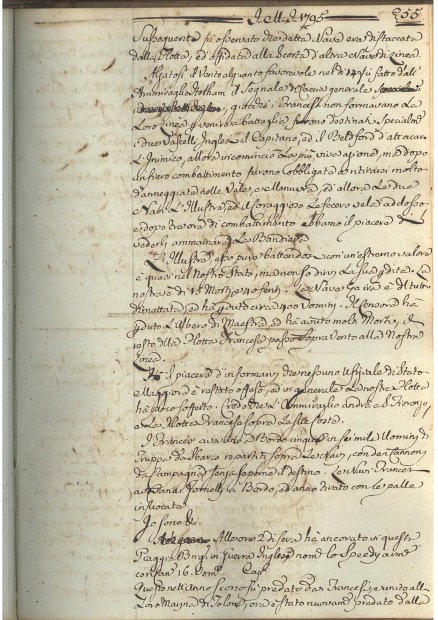 J. M. J. 1795 255
Susseguente fù osservato che detta Nave era distaccata
dalla Flotta, ed affidata alla scorta d'altra Nave di Linea.
Alzatosi il Vento alquanto favorevole nel dì 14 fù fatto dall'
Ammiraglio Hotham il Segnale di Caccia generale
giacchè i Francesi non formavano la
Loro Linea di battaglia furono destinati Specialm.e
i due Vascelli Inglesi il Capitano, ed il Bedford d'attacar
L'Inimico, allora incominciò la più viva azione, ma dopo
un fiero combattimento furono obbligati a ritirarsi molto
danneggiati nelle Vele, e Manuvra, ed allora le due
Navi L'Illustre, ed il Coraggioso la fecero vela addosso
e dopo tre ora di combattimento ebbamo il piacere di
vederli ammainare la Bandiera
L'Illustre, espo pure battendosi con un estremo valore
è quasi nel Nostro Stato, ma non so dirvi la sua perdita. La
nostra è di 15 Morti, e 40 feriti. La Nave Ca ira è del tutto
dimattata, ed ha perduto circa 400 Uomini. Il Censora ha
perduto L'albero di Maestra, ed ha avuto molti Morti, il
resto della Flotta Francesa passò Sopra Vento alla Nostra
Linea.
Hò il piacere d'informarvi che nessuno Ufiziale di Stato
Maggiore è restato offeso, ed in generale la nostra Flotta
ha poco sofferto. Credo che L'Ammiraglio andrà a S. Fiorenzo,
e La Flotta Francesa sopra La sua Costa.
I Francesi avevano a Bordo cinque in sei mila Uomini di
Truppe da sbarco repartiti sopra Le Navi, con dei Cannoni
da Campagna, senza saperne il destino. Le Navi Francesi
avevano dei Fornelli a Bordo, ed anno tirato con le palle
infuocate
Io sono &c.
Alle ore 2 di sera ha ancorato in questa
Piaggia Brig.no in guerra Inglese nom.e lo Speedy arm.e
con Can. 16. Uom. Cap.
Questo nell'anno scorso fù predato da Francesi, e unito alla
Loro Marina di Tolone, ora è stato nuovam.e predato dalla